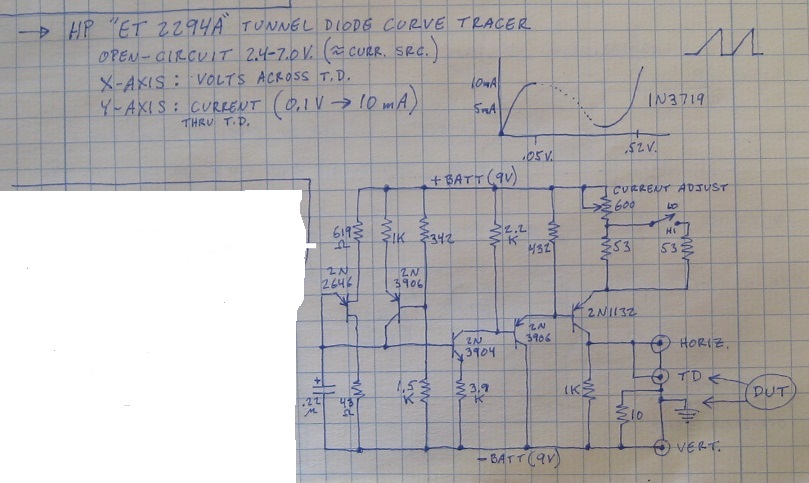 → HP "ET 2294A" TUNNEL DIODE CURVE TRACER
OPEN-CIRCUIT 2.4-7.0V. (≈CURR. SRC.)
X-AXIS: VOLTS ACROSS T.D.
Y-AXIS: CURRENT (0.1V → 10mA)
THRU T.D.
10mA
5mA
1N3719
.05V.
.52V.
+BATT(9V)
CURRENT ADJUST
600
LO
HI
619
Ω
1K
342
2.2
K
432
53
53
2N
2646
2N
3906
2N1132
2N
3904
2N
3906
HORIZ.
TD
DUT
+
.22
M
43
Ω
1.5
K
3.9
K
1K
10
VERT.
-BATT(9V)